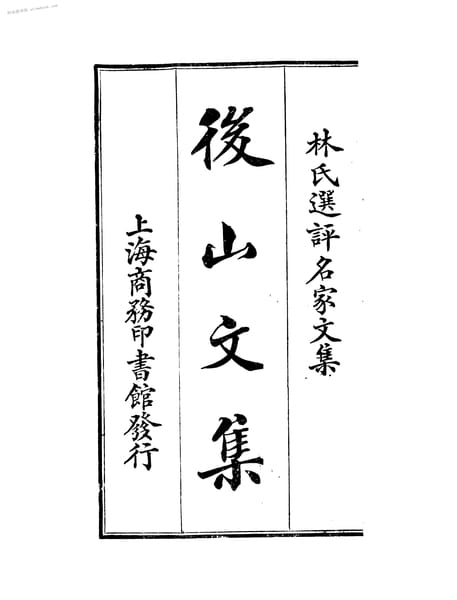 林氏選評名家文集
後山文集
上海商務印書館發行